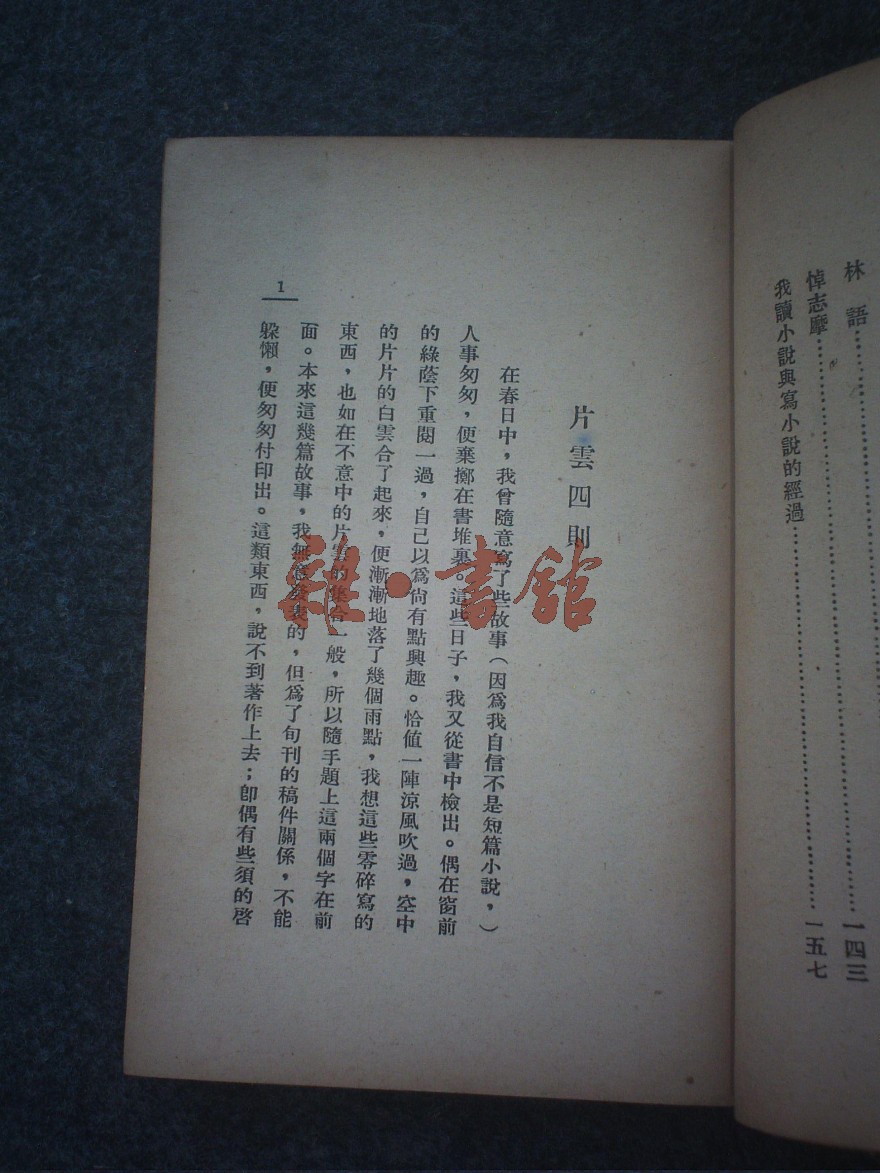 林語……………………一四三
悼志摩……………………一五七
我讀小說與寫小說的經過……………………
片雲四則
在春日中,我曾隨意寫了些故事(因爲我自信不是短篇小說,)
人事匆匆,便棄擲在書堆裏。這些日子,我又從書中檢出。偶在窗前
的綠蔭下重閱一過,自己以爲尙有點興趣。恰值一陣涼風吹過,空中
的片片的白雲合了起來,便漸漸地落了幾個雨點,我想這些零碎寫的
東西,也如在不意中的片雲的集合一般,所以隨手題上這兩個字在前
面。本來這幾篇故事,我無意發表的,但爲了旬刊的稿件關係,不能
躱懶,便匆匆付印出。這類東西,說不到著作上去;卽偶有些須的啓
1
雜·書館